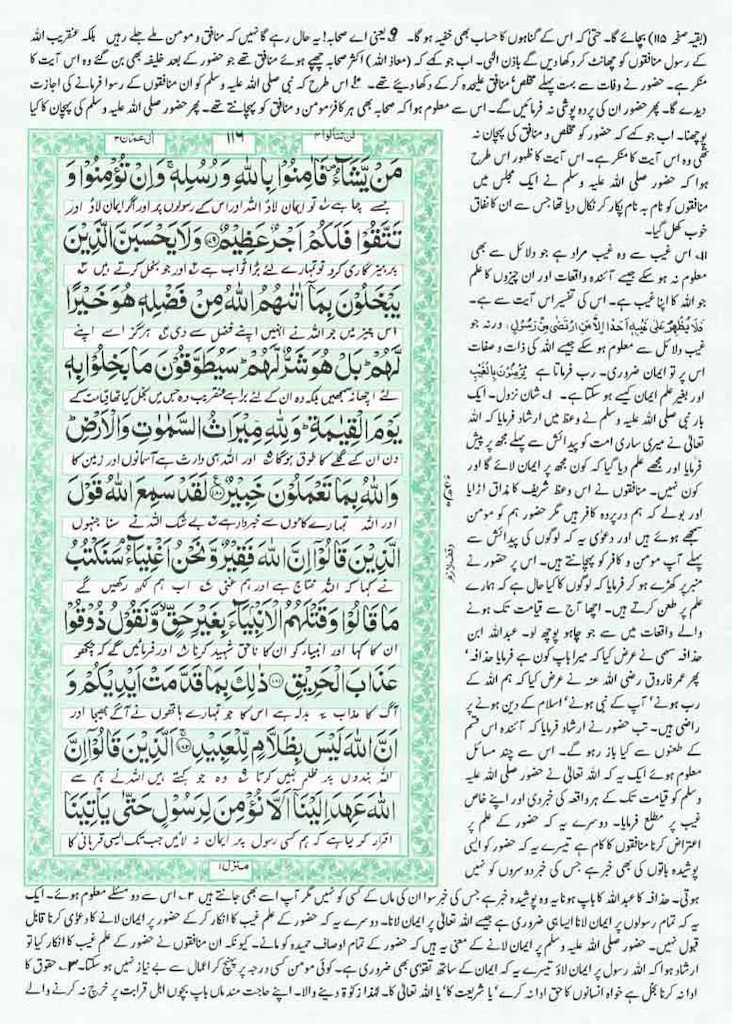 (بقیہ صفحہ ۱۱۵) بچائے گا۔ حتیٰ کہ اس کے گناہوں کا حساب بھی خفیہ ہو گا۔ ۹ یعنی اے صحابہ! یہ حال رہے گا نہیں کہ منافق و مومن ملے جلے رہیں بلکہ عنقریب اللہ
کے رسول منافقوں کو چھانٹ کر دکھا دیں گے باذن الٰہی۔ اب جو کہے کہ (معاذ اللہ) اکثر صحابہ چھپے ہوئے منافق تھے جو حضور کے بعد خلیفہ بھی بن گئے وہ اس آیت کا
منکر ہے۔ حضور نے وفات سے بہت پہلے مخلص، منافق علیحدہ کر کے دکھا دیئے تھے۔ اس طرح کہ نبی صلی اللہ علیہ وسلم کو ان منافقوں کے رسوا فرمانے کی اجازت
دیدے گا۔ پھر حضور ان کی پردہ پوشی نہ فرمائیں گے۔ اس سے معلوم ہوا کہ صحابہ بھی ہر کافر و مومن و منافق کو پہچانتے تھے۔ پھر حضور صلی اللہ علیہ وسلم کی پہچان کا کیا
پوچھنا۔ اب جو کہے کہ حضور کو مخلص و منافق کی پہچان نہ
تھی وہ اس آیت کا منکر ہے۔ اس آیت کا ظہور اس طرح
ہوا کہ حضور صلی اللہ علیہ وسلم نے ایک مجلس میں
منافقوں کو نام بہ نام پکار کر نکال دیا تھا جس سے ان کا نفاق
خوب کھل گیا۔
۱۱۔ اس غیب سے وہ غیب مراد ہے جو دلائل سے بھی
معلوم نہ ہو سکے جیسے آئندہ واقعات اور ان چیزوں کا علم
جو اللہ کا اپنا غیب ہے۔ اس کی تفسیر اس آیت سے ہے۔
فَلَا يُظْهِرُ عَلٰى غَيْبِهٖ اَحَدًا اِلَّا مَنِ ارْتَضٰى مِنْ رَّسُوْلٍ، ورنہ جو
غیب دلائل سے معلوم ہو سکے جیسے اللہ کی ذات و صفات
اس پر تو ایمان ضروری۔ رب فرماتا ہے يُؤْمِنُوْنَ بِالْغَيْبِ
اور بغیر علم ایمان کیسے ہو سکتا ہے۔ ۱۔ شان نزول۔ ایک
بار نبی صلی اللہ علیہ وسلم نے وعظ میں ارشاد فرمایا کہ اللہ
تعالیٰ نے میری ساری امت کو پیدائش سے پہلے مجھ پر پیش
فرمایا اور مجھے علم دیا گیا کہ کون مجھ پر ایمان لائے گا اور
کون نہیں۔ منافقوں نے اس وعظ شریف کا مذاق اڑایا
اور بولے کہ ہم درپردہ کافر ہیں مگر حضور ہم کو مومن
سمجھے ہوئے ہیں اور دعویٰ یہ کہ لوگوں کی پیدائش سے
پہلے آپ مومن و کافر کو پہچانتے ہیں۔ اس پر حضور نے
منبر پر کھڑے ہو کر فرمایا کہ لوگوں کا کیا حال ہے کہ ہمارے
علم پر طعن کرتے ہیں۔ اچھا آج سے قیامت تک ہونے
والے واقعات میں سے جو چاہو پوچھ لو۔ عبد اللہ ابن
حذافہ سہمی نے عرض کیا کہ میرا باپ کون ہے فرمایا حذافہ،
پھر عمر فاروق رضی اللہ عنہ نے عرض کیا کہ ہم اللہ کے
رب ہونے، آپ کے نبی ہونے، اسلام کے دین ہونے پر
راضی ہیں۔ تب حضور نے ارشاد فرمایا کہ آئندہ اس قسم
کے طعنوں سے کیا باز رہو گے۔ اس سے چند مسائل
معلوم ہوئے ایک یہ کہ اللہ تعالیٰ نے حضور صلی اللہ علیہ
وسلم کو قیامت تک کے ہر واقعہ کی خبر دی اور اپنے خاص
غیب پر مطلع فرمایا۔ دوسرے یہ کہ حضور کے علم پر
اعتراض کرنا منافقوں کا کام ہے تیسرے یہ کہ حضور کو ایسی
پوشیدہ باتوں کی بھی خبر ہے جس کی خبر دوسروں کو نہیں
لن تنالوا ۴
۱۱۶
اٰل عمرٰن ۳
مَنْ يَّشَآءُ فَاٰمِنُوْا بِاللّٰهِ وَرُسُلِهٖ وَاِنْ تُؤْمِنُوْا وَ
جسے چاہے تو ایمان لاؤ اللہ اور اس کے رسولوں پر اور اگر ایمان لاؤ اور
تَتَّقُوْا فَلَكُمْ اَجْرٌ عَظِيْمٌ ۝ وَلَا يَحْسَبَنَّ الَّذِيْنَ
پرہیزگاری کرو تو تمہارے لئے بڑا ثواب ہے اور جو بخل کرتے ہیں
يَبْخَلُوْنَ بِمَآ اٰتٰىهُمُ اللّٰهُ مِنْ فَضْلِهٖ هُوَ خَيْرًا
اس چیز میں جو اللہ نے انہیں اپنے فضل سے دی ہرگز اسے اپنے
لَّهُمْ بَلْ هُوَ شَرٌّ لَّهُمْ سَيُطَوَّقُوْنَ مَا بَخِلُوْا بِهٖ
لئے اچھا نہ سمجھیں بلکہ وہ ان کے لئے برا ہے عنقریب وہ جس میں بخل کیا تھا قیامت کے
يَوْمَ الْقِيٰمَةِ وَلِلّٰهِ مِيْرَاثُ السَّمٰوٰتِ وَالْاَرْضِ
دن ان کے گلے کا طوق ہو گا اور اللہ ہی وارث ہے آسمانوں اور زمین کا
وَاللّٰهُ بِمَا تَعْمَلُوْنَ خَبِيْرٌ ۝ لَقَدْ سَمِعَ اللّٰهُ قَوْلَ
اور اللہ تمہارے کاموں سے خبردار ہے بے شک اللہ نے سنا جنہوں
الَّذِيْنَ قَالُوْٓا اِنَّ اللّٰهَ فَقِيْرٌ وَّنَحْنُ اَغْنِيَآءُ سَنَكْتُبُ
نے کہا کہ اللہ محتاج ہے اور ہم غنی اب ہم لکھ رکھیں گے
مَا قَالُوْا وَقَتْلَهُمُ الْاَنْۢبِيَآءَ بِغَيْرِ حَقٍّ وَّنَقُوْلُ ذُوْقُوْا
ان کا کہا اور انبیاء کو ان کا ناحق شہید کرنا اور فرمائیں گے کہ چکھو
عَذَابَ الْحَرِيْقِ ۝ ذٰلِكَ بِمَا قَدَّمَتْ اَيْدِيْكُمْ وَ
آگ کا عذاب یہ بدلہ ہے اس کا جو تمہارے ہاتھوں نے آگے بھیجا اور
اَنَّ اللّٰهَ لَيْسَ بِظَلَّامٍ لِّلْعَبِيْدِ ۝ اَلَّذِيْنَ قَالُوْٓا اِنَّ
اللہ بندوں پر ظلم نہیں کرتا وہ جو کہتے ہیں اللہ نے ہم سے
اللّٰهَ عَهِدَ اِلَيْنَآ اَلَّا نُؤْمِنَ لِرَسُوْلٍ حَتّٰى يَاْتِيَنَا
اقرار کر لیا ہے کہ ہم کسی رسول پر ایمان نہ لائیں جب تک ایسی قربانی کا
منزل ۱
وقف لازم
ہوتی۔ حذافہ کا عبد اللہ کا باپ ہونا یہ وہ پوشیدہ خبر ہے جس کی خبر سوا ان کی ماں کے کسی کو نہیں مگر آپ اسے بھی جانتے ہیں ۲۔ اس سے دو مسئلے معلوم ہوئے۔ ایک
یہ کہ تمام رسولوں پر ایمان لانا ایسا ہی ضروری ہے جیسے اللہ تعالیٰ پر ایمان لانا۔ دوسرے یہ کہ حضور کے علم غیب کا انکار کر کے حضور پر ایمان لانے کا دعویٰ کرنا قابل
قبول نہیں۔ حضور صلی اللہ علیہ وسلم پر ایمان لانے کے معنی یہ ہیں کہ حضور کے تمام اوصاف حمیدہ کو مانے۔ کیونکہ ان منافقوں نے حضور کے علم غیب کا انکار کیا تو
ارشاد ہوا کہ اللہ رسول پر ایمان لاؤ تیسرے یہ کہ ایمان کے ساتھ تقویٰ بھی ضروری ہے۔ کوئی مومن کسی درجہ پر پہنچ کر اعمال سے بے نیاز نہیں ہو سکتا۔ ۳۔ حقوق کا
ادا نہ کرنا بخل ہے خواہ انسانوں کا حق ادا نہ کرے، یا شریعت کا، یا اللہ تعالیٰ کا۔ لہٰذا زکوٰۃ نہ دینے والا۔ اپنے حاجت مند ماں باپ بچوں اہل قرابت پر خرچ نہ کرنے والے